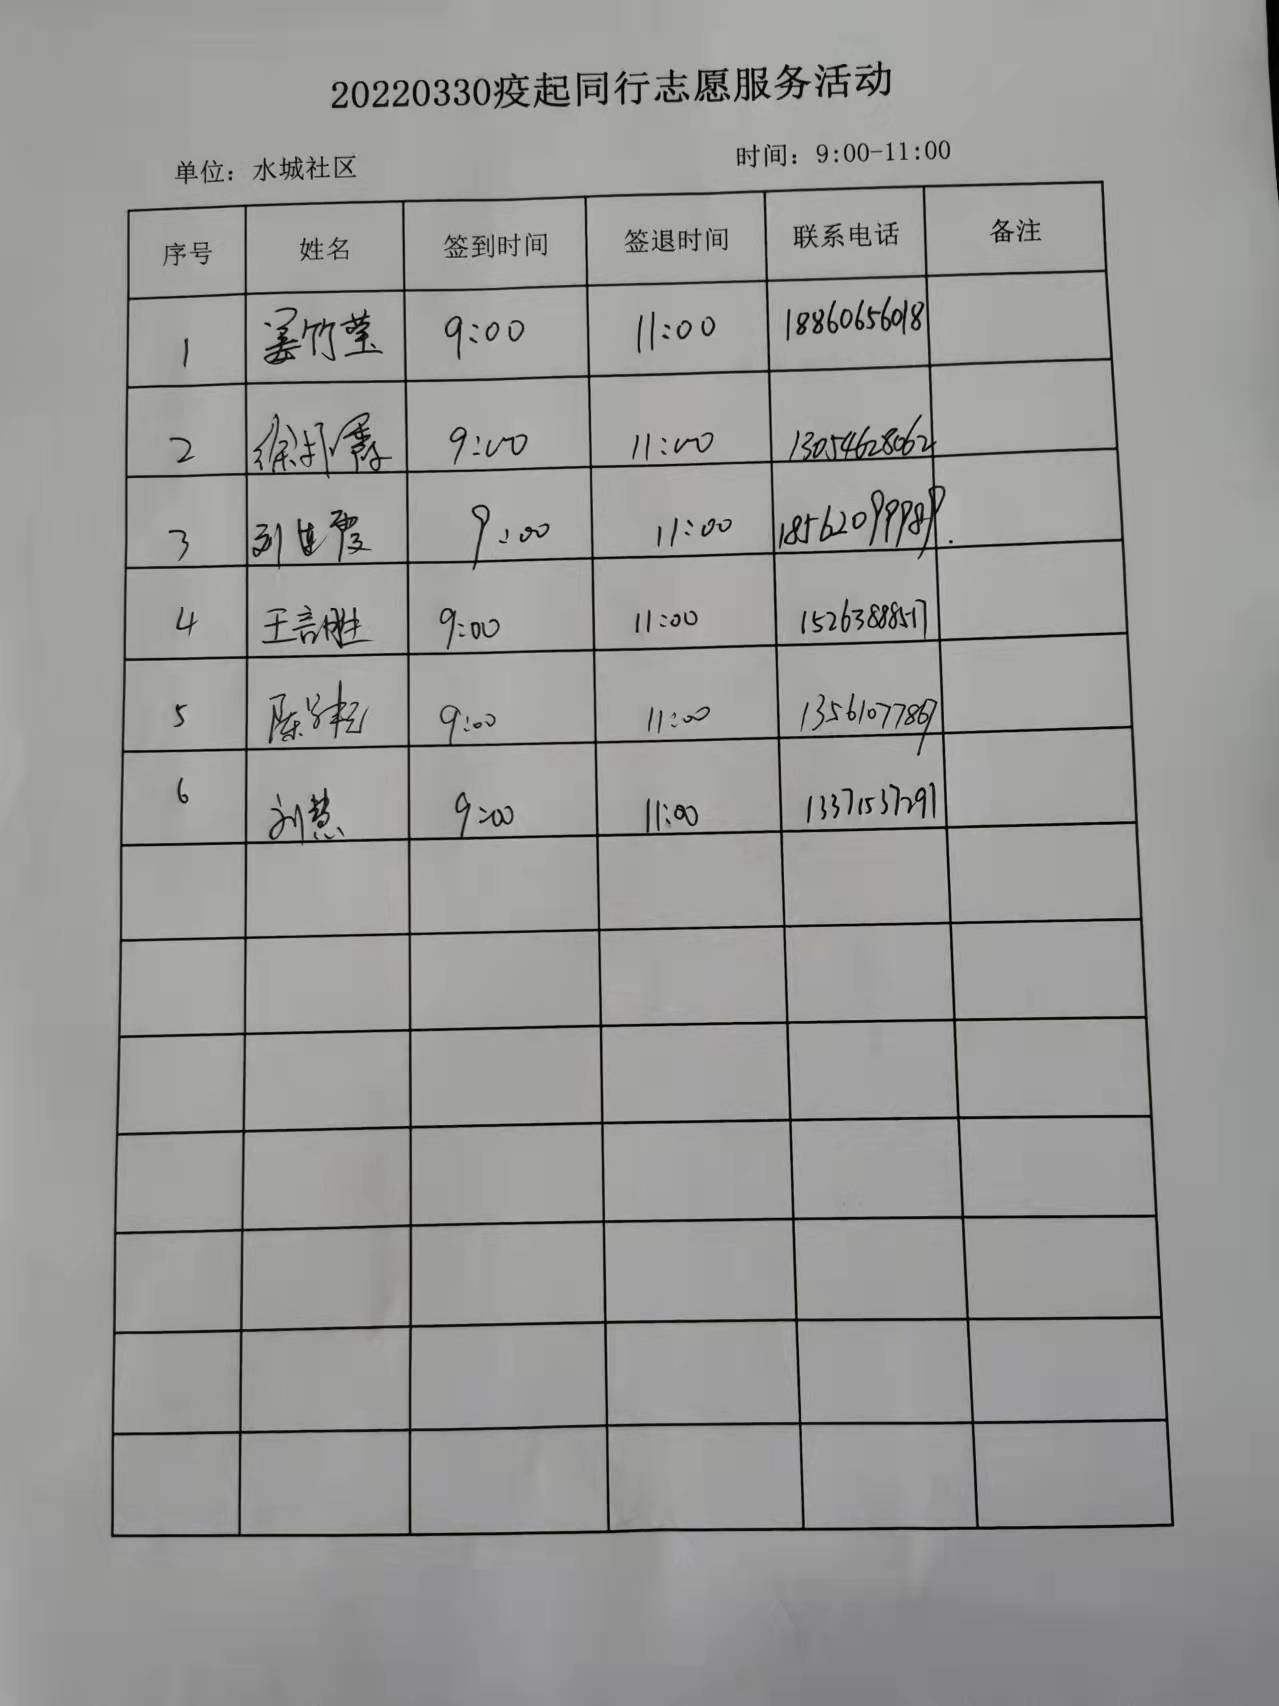 20220330疫起同行志愿服务活动
单位：水城社区 时间：9:00-11:00
序号 姓名 签到时间 签退时间 联系电话 备注
1 姜竹莹 9:00 11:00 18860656018
2 徐 9:00 11:00 13054628062
3 9:00 11:00 18562099989
4 王言胜 9:00 11:00 15263888517
5 陈 9:00 11:00 13561077867
6 刘慧 9:00 11:00 13371537291